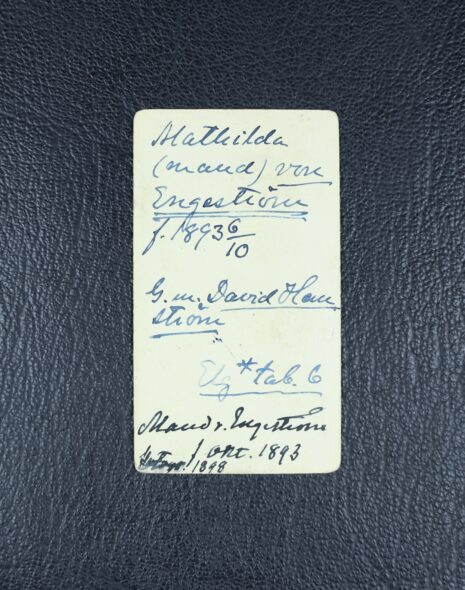 Mathilda
(maud) von
Engeström
f. 1893 6/10
G. m. David Ham
ström
Elg * tab. 6
Maud v. Engeström
f. okt. 1893
fotogr. 1898